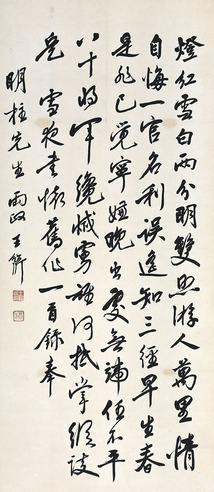 燈紅雪白兩分明雙照游人萬里情
自悔一官名利誤遙知三徑早生春
是非已覺寧嫌晚出處無端伍不平
八十將軍纔減
抵掌縱談
兵 雪夜書懷舊作一首錄奉
明柱先生兩政